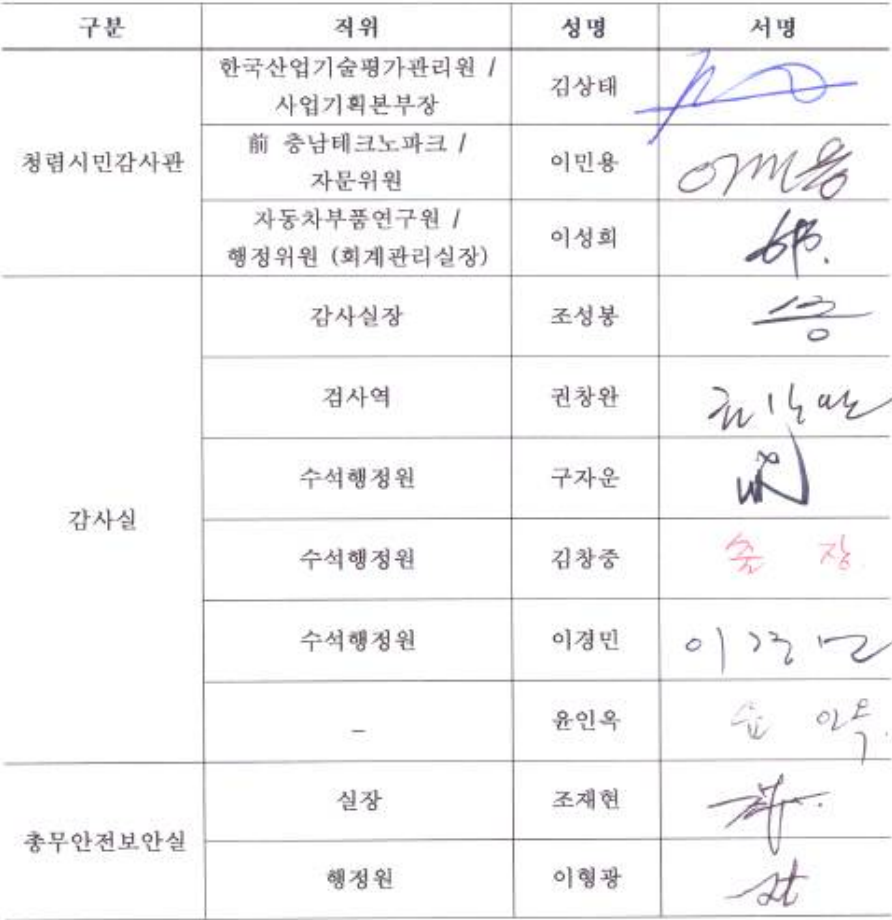 구분 직위 성명 서명
한국산업기술평가관리원 /
사업기획본부장
김상태
청렴시민감사관
前 충남테크노파크 /
자문위원
이민용 이민용
자동차부품연구원 /
행정위원 (회계관리실장)
이성희
감사실
감사실장 조성봉
검사역 권창완 권창완
수석행정원 구자운
수석행정원 김창중 출 장
수석행정원 이경민 이경민
- 윤인옥 윤인옥
총무안전보안실
실장 조재현
행정원 이형광